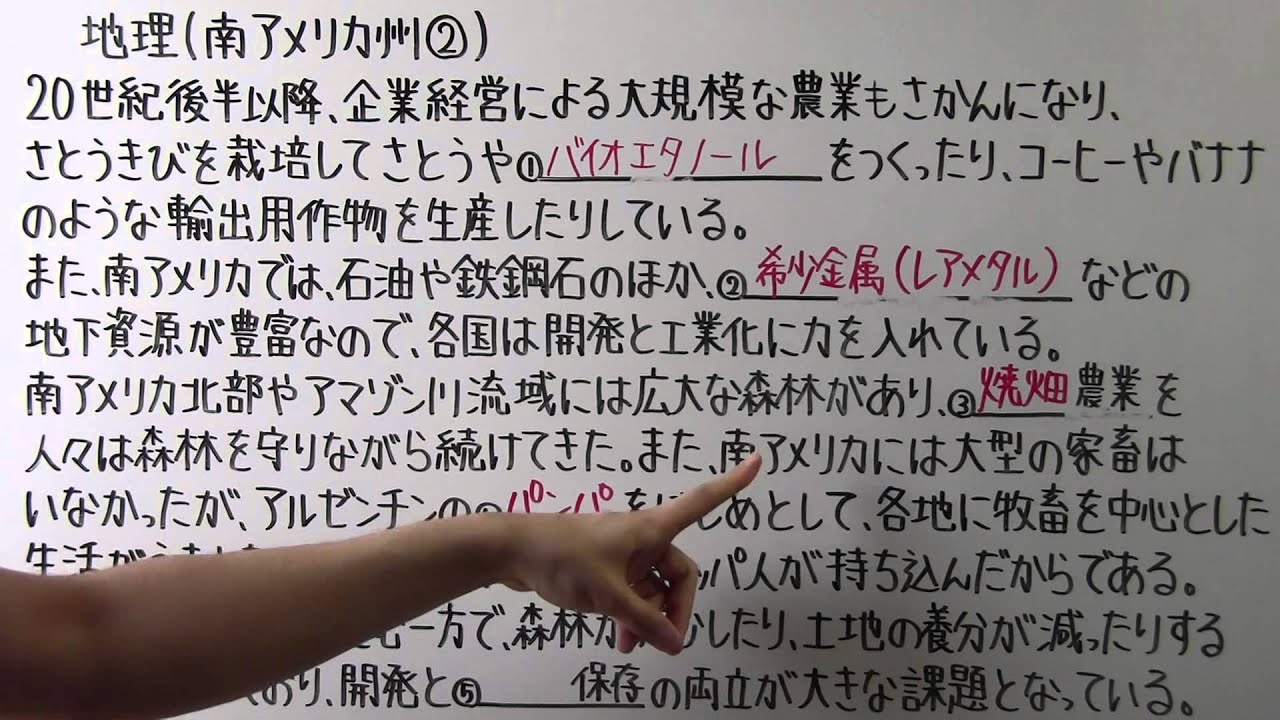 地理(南アメリカ州②)
20世紀後半以降、企業経営による大規模な農業もさかんになり、
さとうきびを栽培してさとうや①バイオエタノール をつくったり、コーヒーやバナナ
のような輸出用作物を生産したりしている。
また、南アメリカでは、石油や鉄鋼石のほか、②希少金属(レアメタル) などの
地下資源が豊富なので、各国は開発と工業化に力を入れている。
南アメリカ北部やアマゾン川流域には広大な森林があり、③焼畑農業を
人々は森林を守りながら続けてきた。また、南アメリカには大型の家畜は
いなかったが、アルゼンチンの パンパを じめとして、各地に牧畜を中心とした
生活が パ人が持ち込んだからである。
一方で、森林が したり、土地の養分が減ったりする
おり、開発と⑤ 保存の両立が大きな課題となっている。